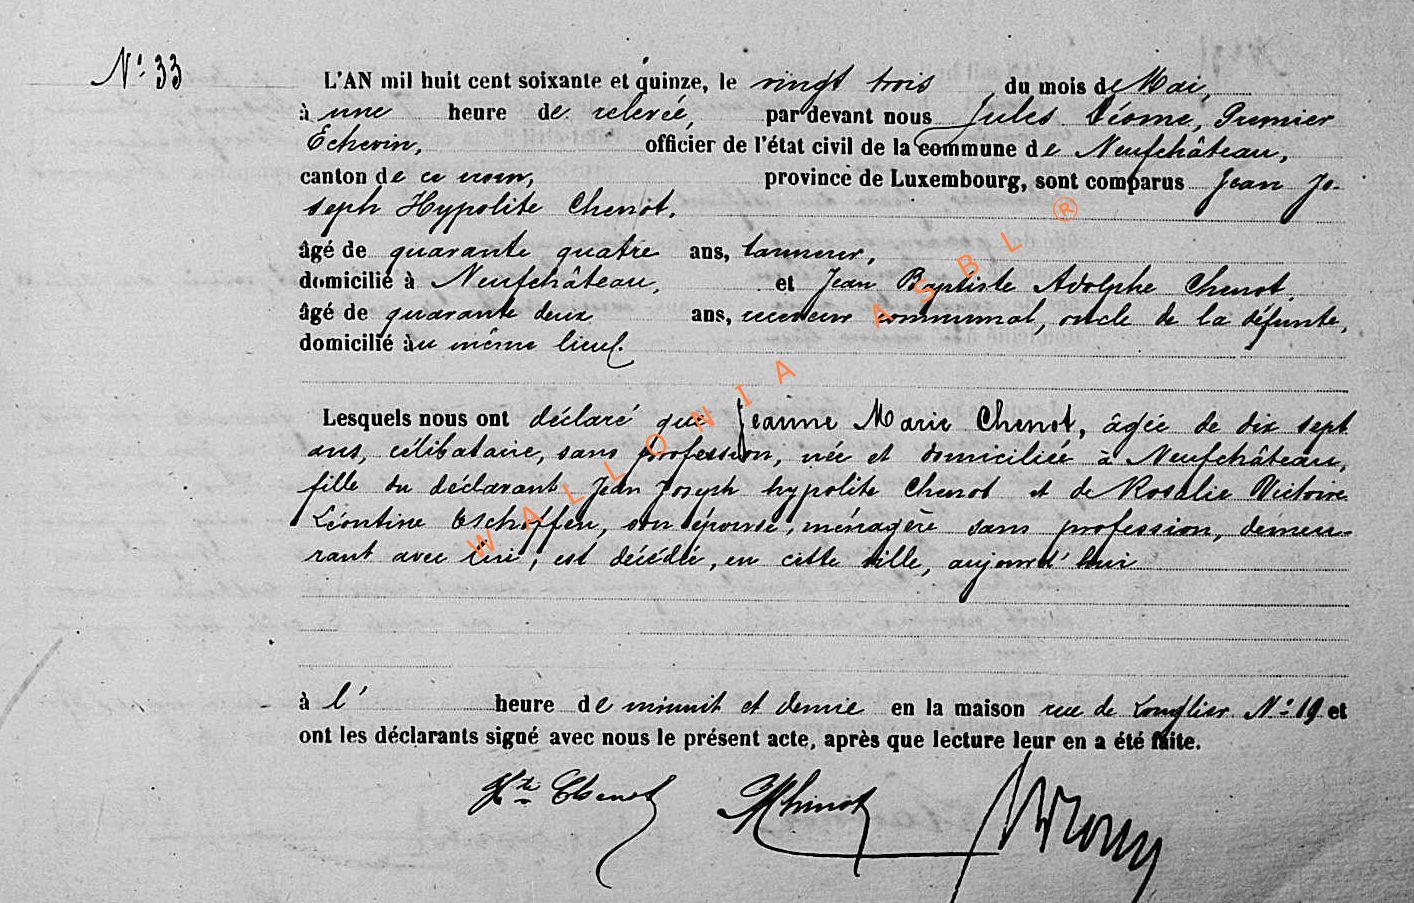 N° 33
L'AN mil huit cent soixante et quinze, le vingt trois du mois de Mai,
à une heure de relevée, par devant nous Jules Déome, Premier
Echevin, officier de l'état civil de la commune de Neufchâteau,
canton de ce nom, province de Luxembourg, sont comparus Jean Jo-
seph Hypolite Chenot,
âgé de quarante quatre ans, tanneur,
domicilié à Neufchâteau, et Jean Baptiste Adolphe Chenot,
âgé de quarante deux ans, receveur communal, oncle de la défunte,
domicilié au même lieu.
Lesquels nous ont déclaré que Jeanne Marie Chenot, âgée de dix sept
ans, célibataire, sans profession, née et domiciliée à Neufchâteau,
fille du déclarant Jean Joseph hypolite Chenot et de Rosalie Victoire
Léontine Eschoffen, son épouse, ménagère sans profession, demeu-
rant avec lui, est décédée, en cette ville, aujourd'hui
à l' heure de minuit et demie en la maison rue de Longlier N° 19 et
ont les déclarants signé avec nous le présent acte, après que lecture leur en a été faite.
Hte Chenot AChenot
WALLONIA ASBL ®